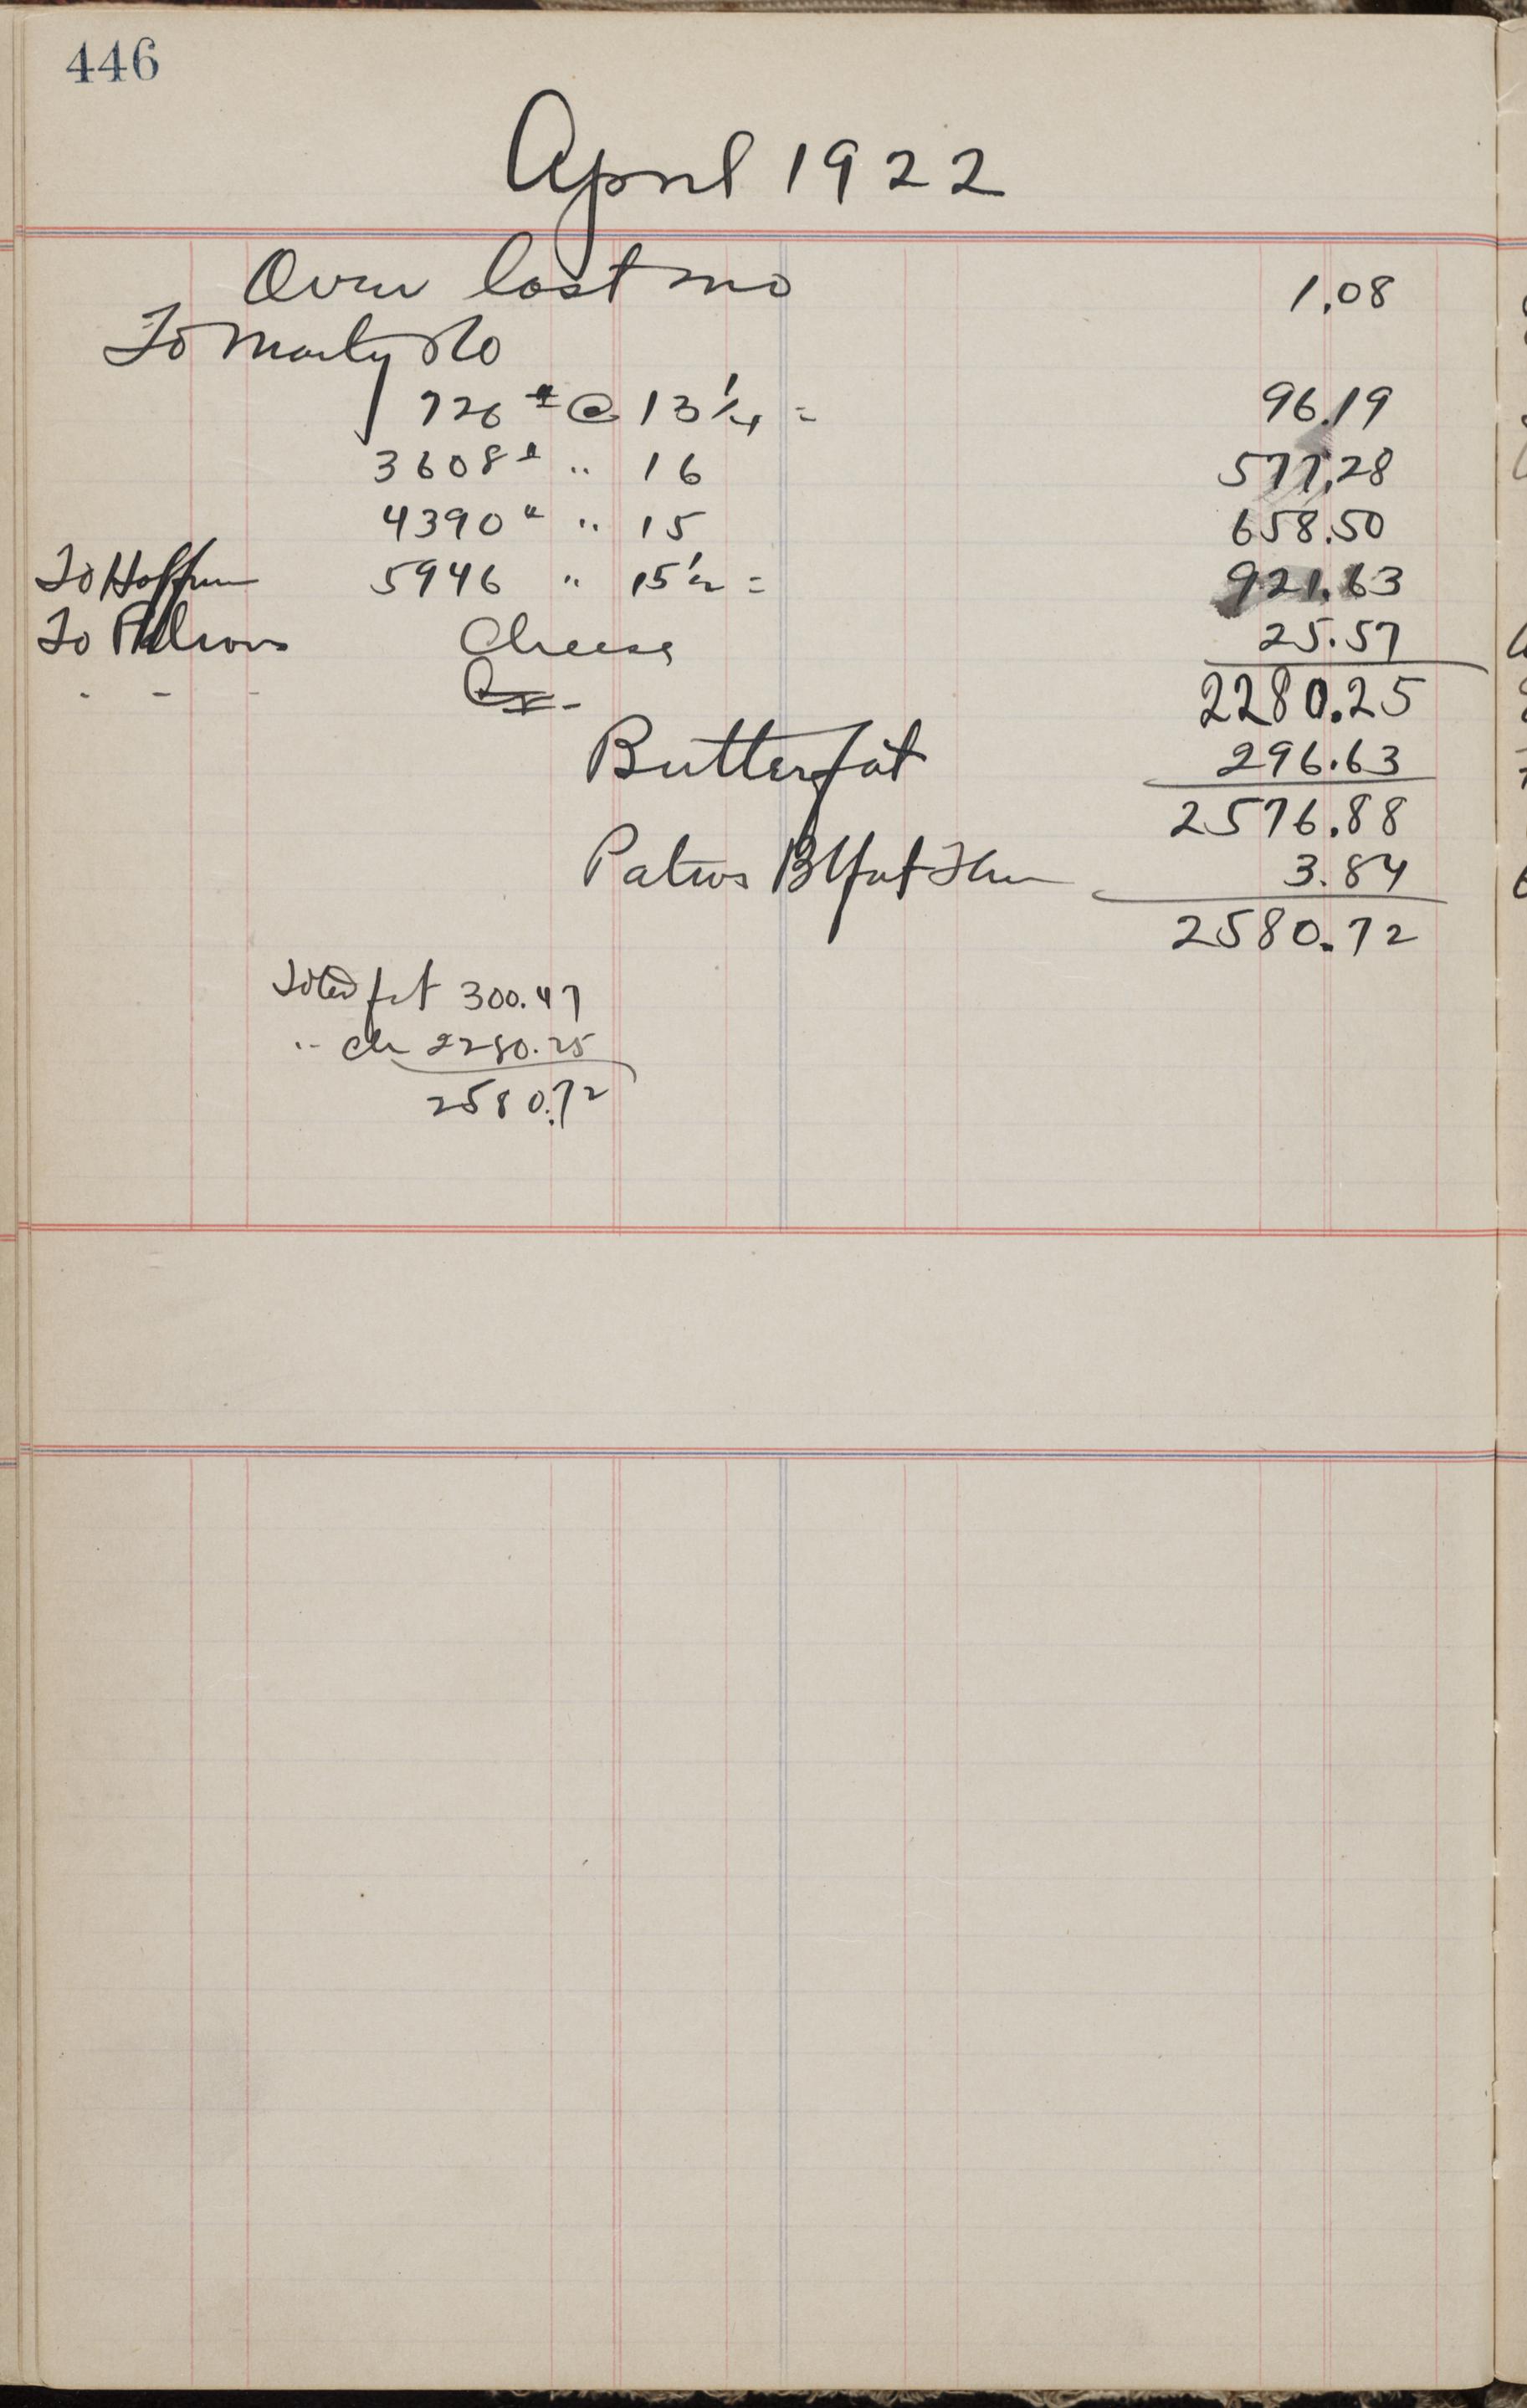 446
April 1922
Over last mo 1.08
To Marty Co
726 # @ 13 1/4 = 96.19
3608 # " 16 577.28
4390 " " 15 658.50
To Hoffman 5946 " 15 1/2 = 921.63
To Patrons Cheese 25.57
- - - 2280.25
Butterfat 296.63
2576.88
Patrons B fat 3.84
2580.72
Total fat 300.47
" Ch 2280.25
2580.72